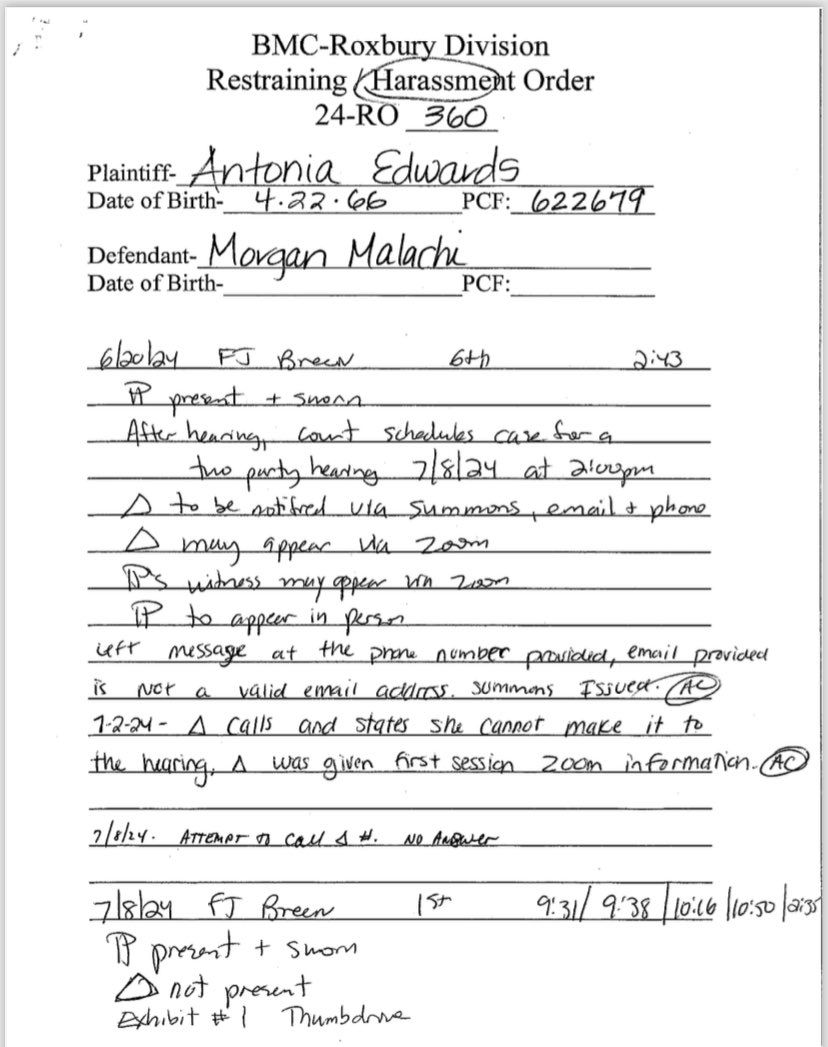 BMC-Roxbury Division
Restraining / Harassment Order
24-RO 360
Plaintiff- Antonia Edwards
Date of Birth- 4.22.66 PCF: 622679
Defendant- Morgan Malachi
Date of Birth- PCF:
6/20/24 FJ Breen 6th 2:43
π present + sworn
After hearing, court schedules case for a
two party hearing 7/8/24 at 2:00pm
Δ to be notified via summons, email + phone
Δ may appear via zoom
π's witness may appear via zoom
π to appear in person
Left message at the phone number provided, email provided
is not a valid email address. Summons Issued. AC
7-2-24- Δ calls and states she cannot make it to
the hearing, Δ was given first session zoom information. AC
7/8/24. ATTEMPT TO CALL Δ #. NO ANSWER
7/8/24 FJ Breen 1st 9:31/ 9:38 /10:16 /10:50 /2:35
π present + sworn
Δ not present
Exhibit # 1 Thumbdrive